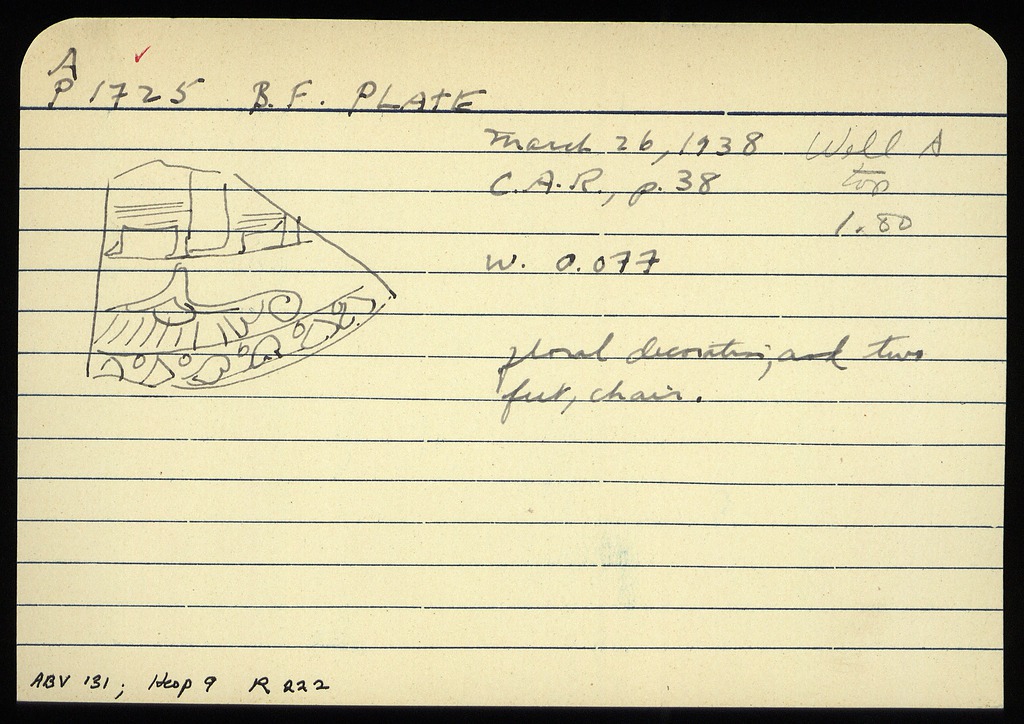 A
P 1725 B.F. PLATE
March 26, 1938 Well A
C.A.R., p. 38 top
1.80
W. 0.077
floral decoration, and two
feet, chair.
ABV 131; Hesp 9 R 222